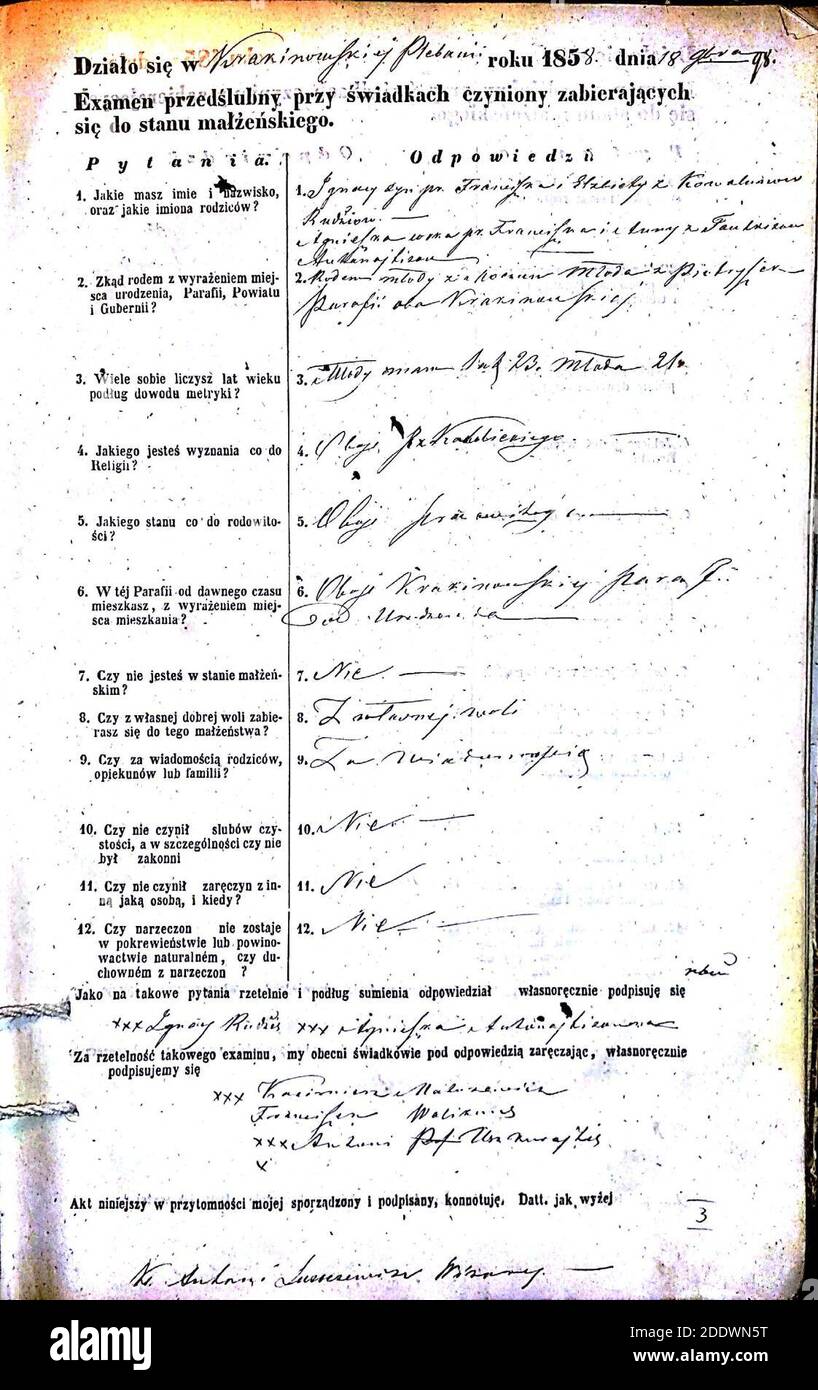 Działo się w Krakinowskiej Plebani roku 1858. dnia 18 9bra 98.
Examen przedślubny przy świadkach czyniony zabierających
się do stanu małżeńskiego.
Pytania. Odpowiedzi
1. Jakie masz imie i nazwisko, 1. Ignacy syn pr. Franciszka i Elżbiety z
oraz jakie imiona rodziców? Rudziow.
Agnieszka corka pr. Franciszka i Anny z
2. Zkąd rodem z wyrażeniem miej- 2. Rodem młody z Młoda z
sca urodzenia, Parafii, Powiatu Parafii oba Krakinowskiej
i Gubernii?
3. Wiele sobie liczysz lat wieku 3. Młody mam lat 23. Młoda 21.
podług dowodu metryki?
4. Jakiego jesteś wyznania co do 4. Oboje Rz Katolickiego
Religii?
5. Jakiego stanu co do rodowito- 5. Oboje
ści?
6. W téj Parafii od dawnego czasu 6. Oboje Krakinowskiej Paraf:
mieszkasz, z wyrażeniem miej- od Urodzenia
sca mieszkania?
7. Czy nie jesteś w stanie małżeń- 7. Nie
skim?
8. Czy z własnej dobrej woli zabie- 8. Z własnej woli
rasz się do tego małżeństwa?
9. Czy za wiadomością rodziców, 9. Za wiadomością
opiekunów lub familii?
10. Czy nie czynił slubów czy- 10. Nie
stości, a w szczególności czy nie
był zakonni
11. Czy nie czynił zaręczyn z in- 11. Nie
ną jaką osobą, i kiedy?
12. Czy narzeczon nie zostaje 12. Nie
w pokrewieństwie lub powino-
wactwie naturalném, czy du-
chowném z narzeczon ?
Jako na takowe pytania rzetelnie i podług sumienia odpowiedział własnoręcznie podpisuję się
xxx Ignacy Rudzis xxx Agnieszka
Za rzetelność takowego examinu, my obecni świadkowie pod odpowiedzią zaręczając, własnoręcznie
podpisujemy się
xxx Kazimierz
Franciszek
xxx Antoni
x
Akt niniejszy w przytomności mojej sporządzony i podpisany, konnotuję. Datt. jak wyżej
3
X. Antoni
alamy
Image ID: 2DDWN5T
www.alamy.com